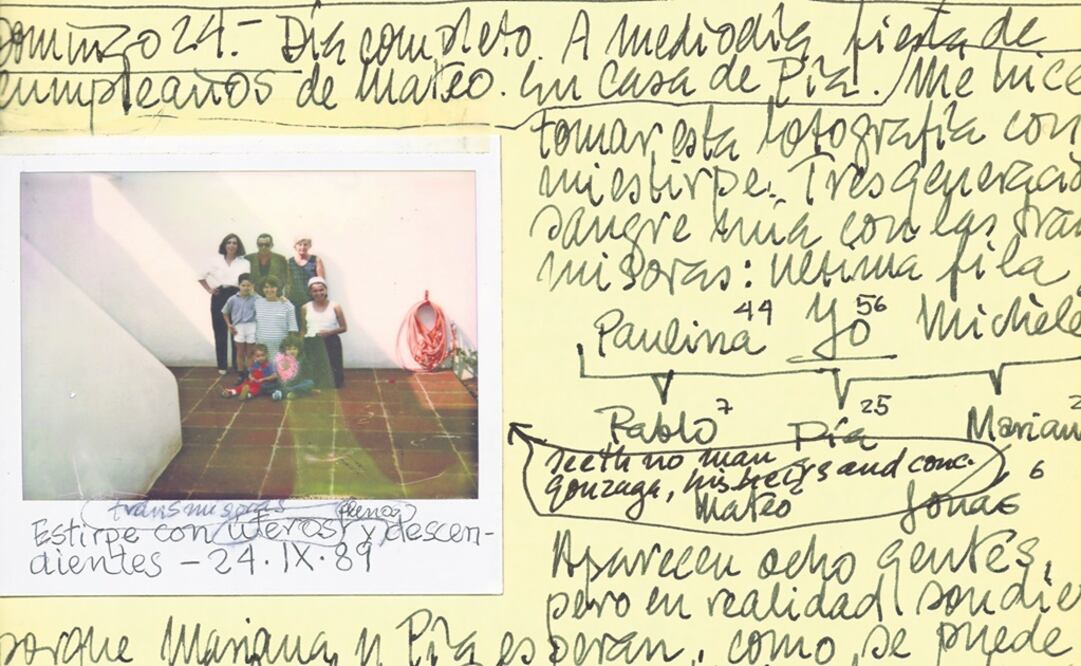 Domingo 24.- Día completo. A mediodía, fiesta de
cumpleaños de Mateo. En casa de Pía. Me hice
tomar esta fotografía con
mi estirpe. Tres generacio
sangre mía con las tran
misoras: última fila
Paulina 44 Yo 56 Michèle
Pablo 7 Pía 25 Marian 2
seeth no man
gonzaga, his heirs and conc.
6
Mateo Jonas
transmisoras (llenos)
Estirpe con úteros y descen-
dientes - 24.IX.89
Aparecen ocho gentes,
pero en realidad son die
porque Mariana y Pía esperan, como se puede